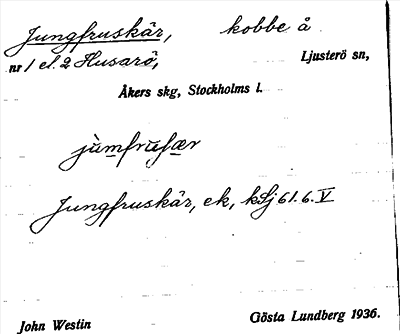 Jungfruskär, kobbe å
nr 1 el. 2 Husarö, Ljusterö sn,
Åkers skg, Stockholms l.
jùmfruſær
Jungfruskär, ek, kSj 61.6.V
John Westin Gösta Lundberg 1936.